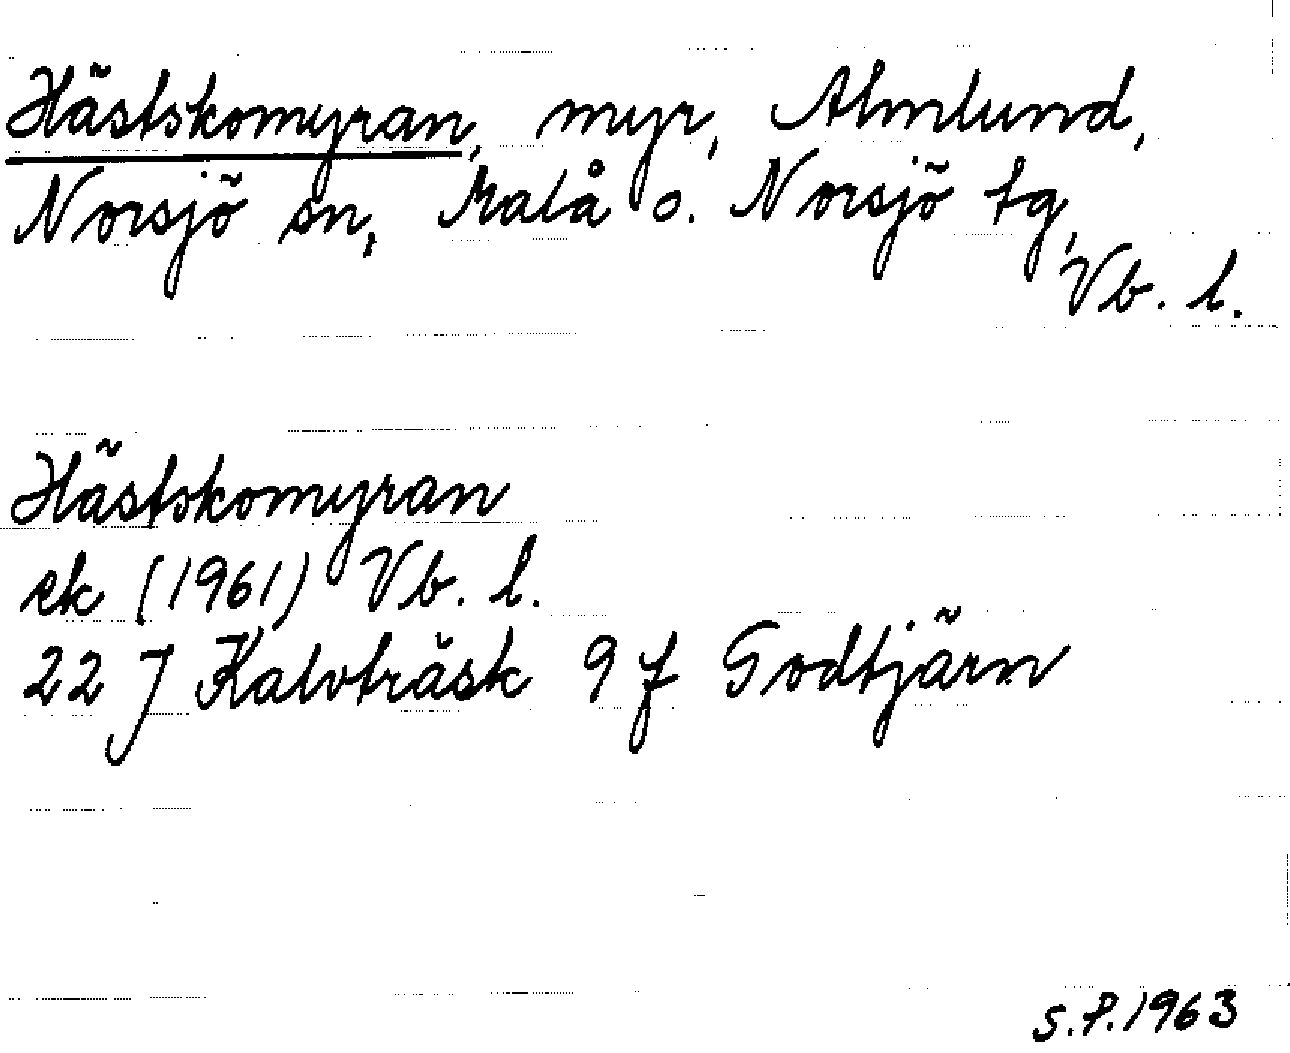 Hästskomyran, myr, Almlund,
Norsjö sn, Malå o. Norsjö tg,
Vb. l.
Hästskomyran
ek (1961) Vb. l.
22 J Kalvträsk 9 f Godtjärn
S.P.1963